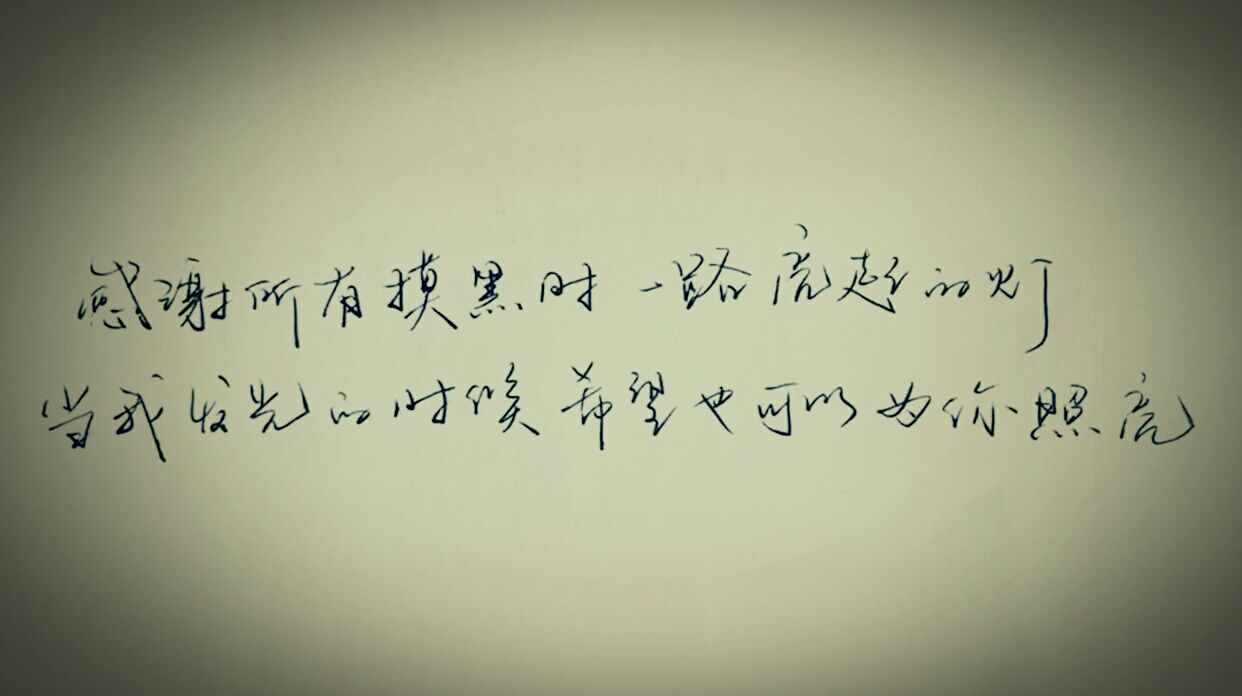 感谢所有摸黑时一路亮起的灯
当我发光的时候希望也可以为你照亮